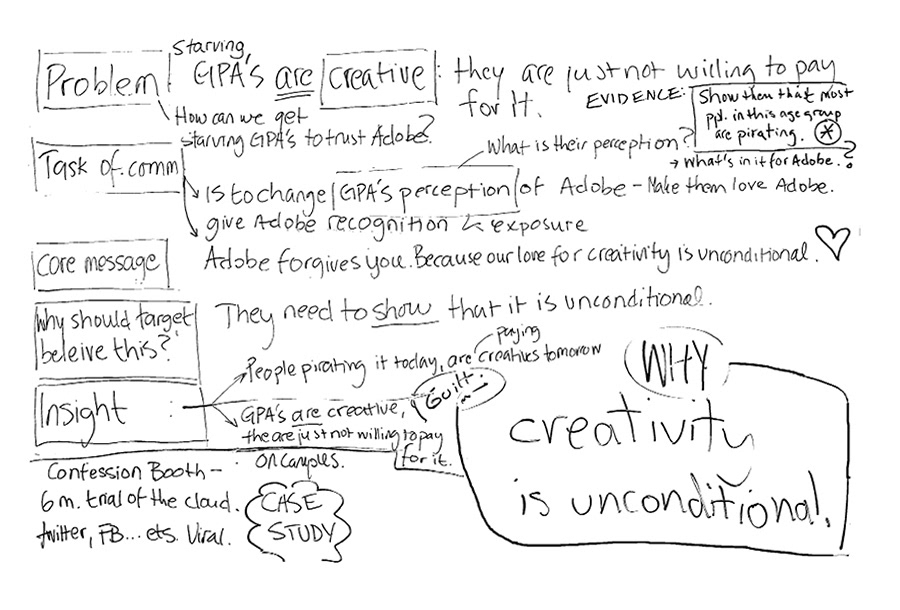 Problem
Starving,
GIPA'S are creative: they are just not willing to pay
for it.
EVIDENCE:
Show them that most
ppl. in this age group
are pirating. *
→ What's in it for Adobe.?
How can we get
starving GIPA'S to trust Adobe?
What is their perception?
Task of comm
→ is to change GPA's perception of Adobe - Make them love Adobe.
give Adobe recognition & exposure
core message
Adobe forgives you. Because our love for creativity is unconditional.
Why should target
beleive this?
They need to show that it is unconditional.
Insight :
People pirating it today, are paying creatives tomorrow
GPA's are creative,
the are just not willing to pay
for it.
Guilt.
Confession Booth -
on camples.
6 m. trial of the cloud.
twitter, FB... ets. Viral.
CASE
STUDY
WHY
creativity
is unconditional.